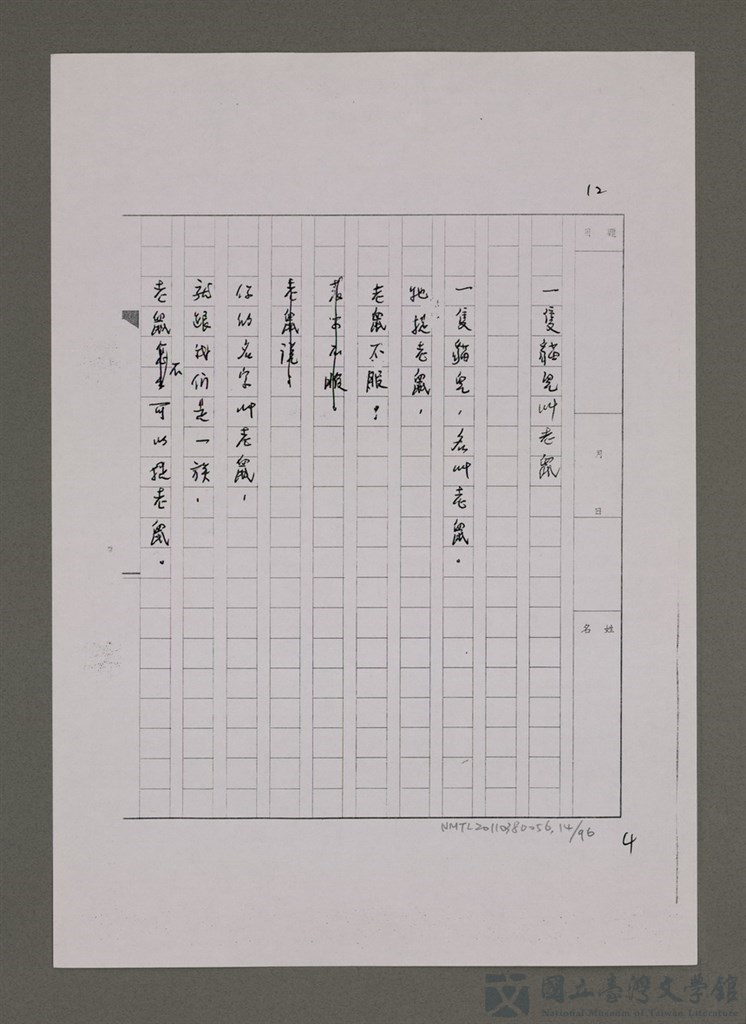 12
題 可
月 日
姓 名
一隻貓兒叫老鼠
一隻貓兒，名叫老鼠。
牠捉老鼠，
老鼠不服：
老鼠說：
你的名字叫老鼠，
就跟我們是一族，
老鼠不可以捉老鼠。
NMTL20110380056,14/96
4
國立臺灣文學館
National Museum of Taiwan Literature